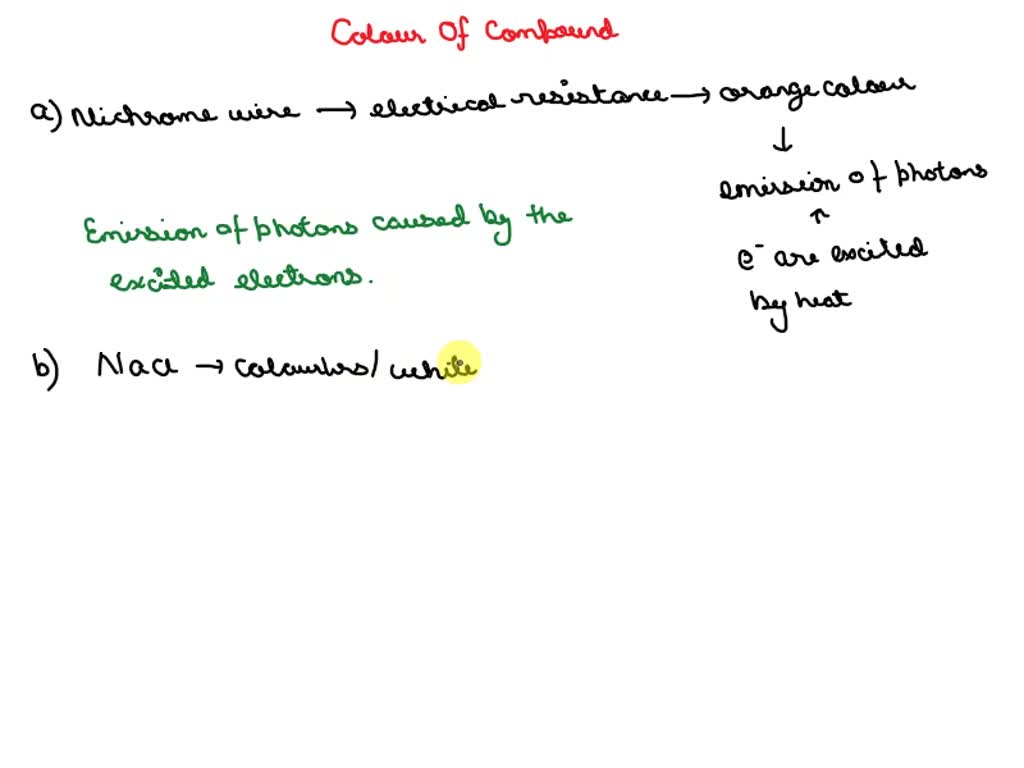 Colour Of Compound
a) Nichrome wire → electrical resistance → orange colour
↓
emission of photons
↑
e⁻ are excited
by heat
Emission of photons caused by the
excited electrons.
b) NaCl → colourless/ white